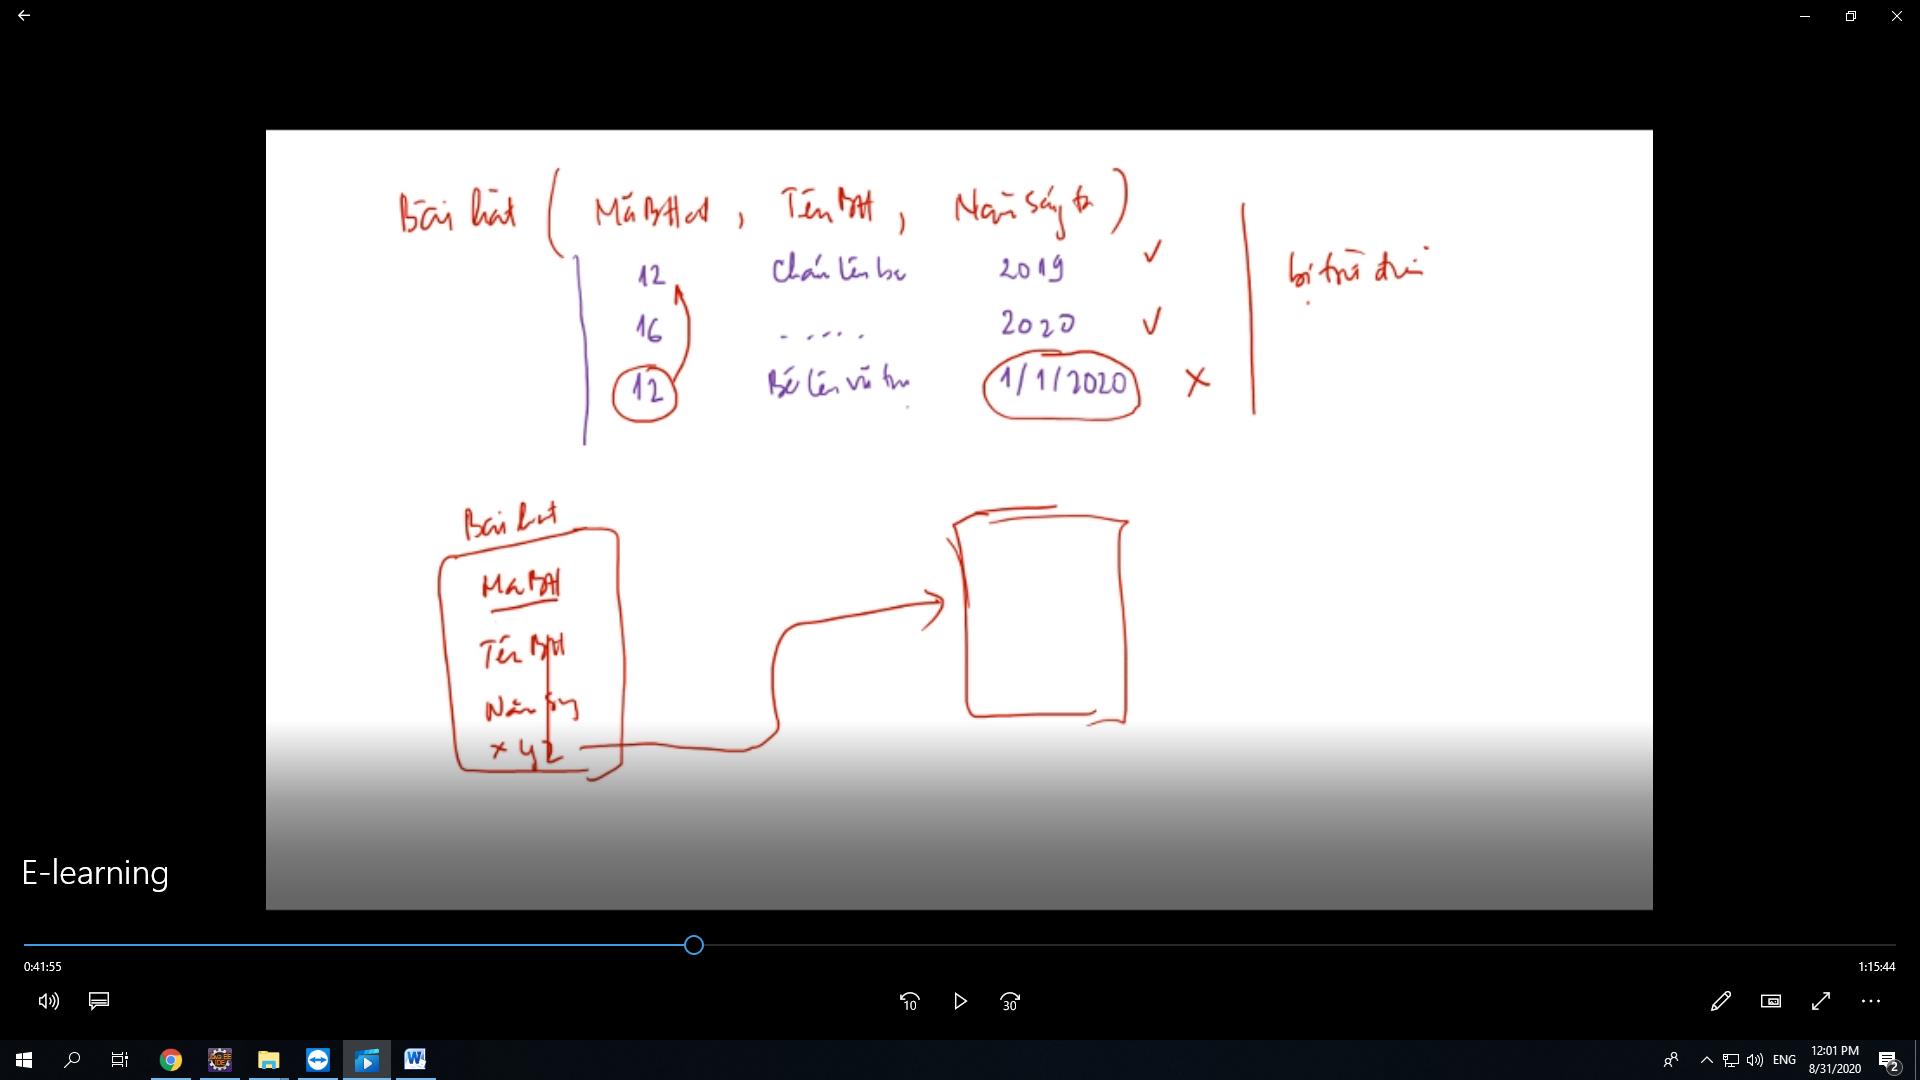 Bài hát ( Mã BHát , Tên BH , Năm Sáng tá )
12 Chắn lên be 2019 ✓
16 ..... 2020 ✓
12 Bé lên vũ trụ 1/1/2020 ×
bị
Bài hát
Ma BH
Tên BH
Năm
x y z
E-learning
0:41:55
1:15:44
10
30
ENG
12:01 PM
8/31/2020
2